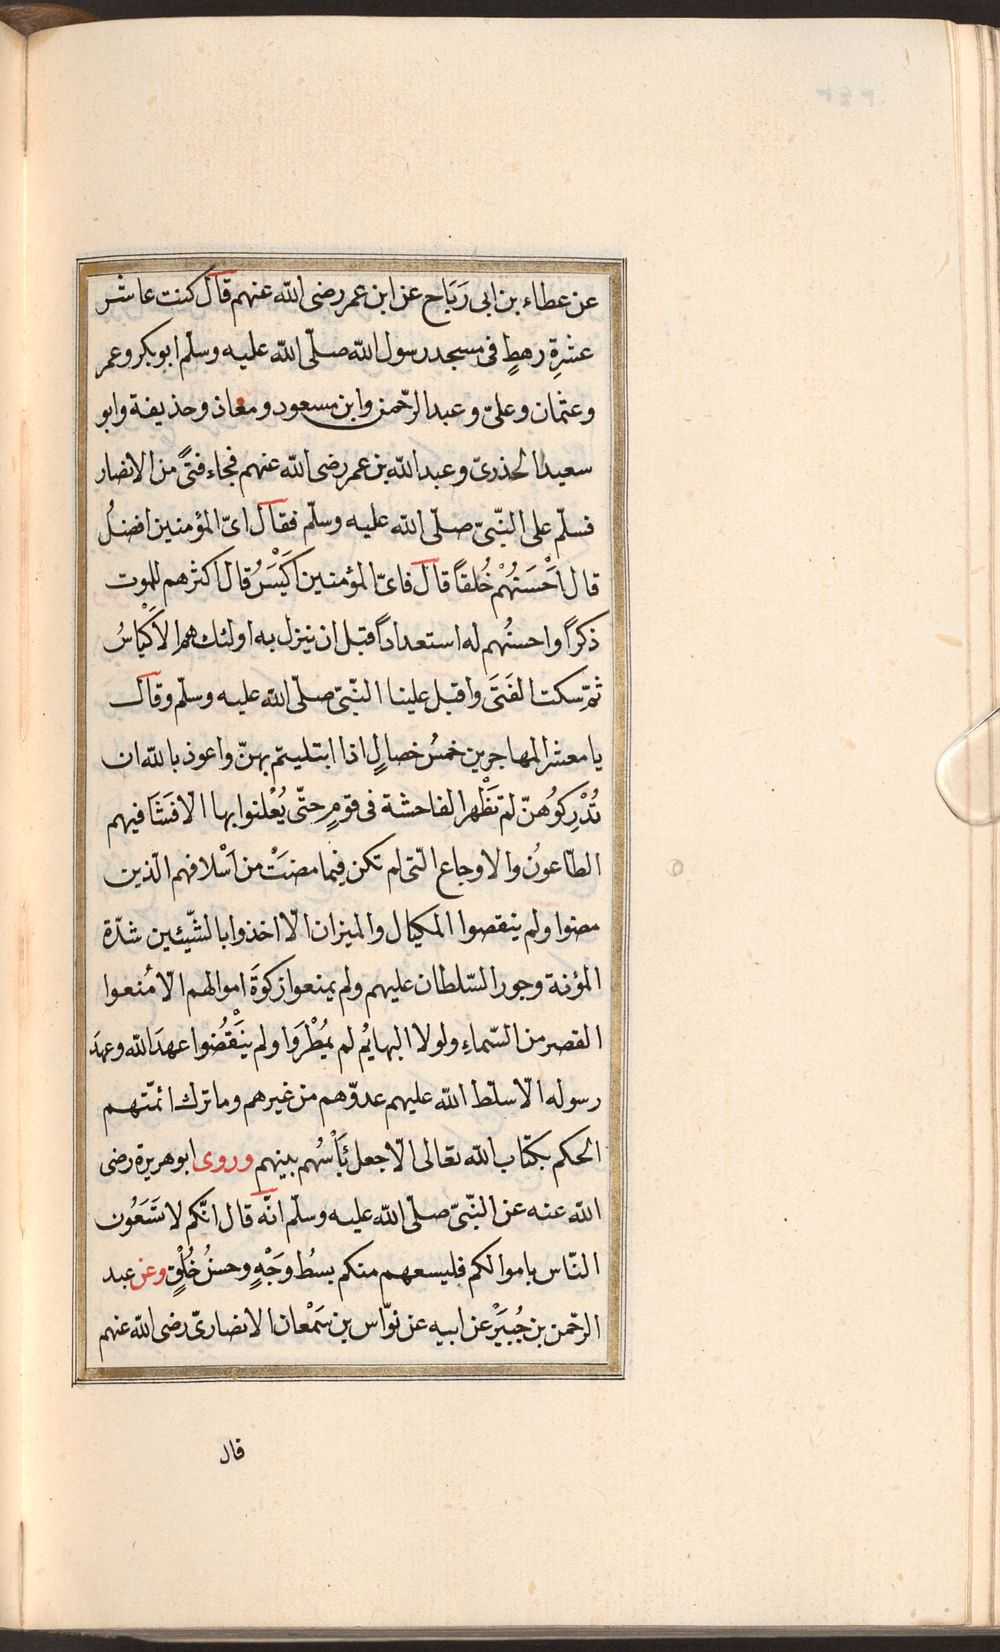 عن عطاء بن ابى رَبَاح عن ابن عمر رضى الله عنهم قال كنت عاشر
عشرِة رهطٍ فى مسجد رسول الله صلّى الله عليه وسلّم ابو بكر وعمر
وعثمان وعلىّ وعبد الرّحمن وابن مسعود ومعاذ وحذيفة وابو
سعيد الخدرىّ وعبد الله بن عمر رضى الله عنهم فجاء فتىً من الانصار
فسلّم على النّبىّ صلّى الله عليه وسلّم فقال اىّ المؤمنين افضلُ
قال اَحْسَنُهُمْ خُلقاً قال فاىّ المؤمنين اَكْيَسُ قال اكثرهم للموت
ذكراً واحسنُهم له استعداداً قبل ان ينزل به اولئك هم الاَكْيَاسُ
ثمّ سكت الفَتَى واقبل علينا النّبىّ صلّى الله عليه وسلّم وقال
يا معشر المهاجرين خمسُ خصالٍ اذا ابتليتم بهنّ واعوذ بالله ان
تُدْرِكوُهنّ لم تَظْهر الفاحشة فى قومٍ حتّى يُعْلنوا بها الّا فَشَا فيهم
الطّاعونُ والاوجاع الّتى لم تكن فيما مضَتْ من اَسْلافهم الّذين
مضوا ولم ينقصوا المكيال والميزان الّا اخذوا بالشّيئين شدّة
المؤنة وجور السّلطان عليهم ولم يمنعوا زكوةَ اموالهم الّا مُنعوا
القصر من السّماءِ ولولا البهايُم لم يُمْطَروا ولم يَنْقُضُوا عهدَ الله وعهدَ
رسوله الّا سلّط الله عليهم عدوّهم من غيرهم وما ترك ائمّتهم
الحكم بكتاب الله تعالى الّا جعل بَأْسُهم بينهم وروى ابو هريرة رضى
الله عنه عن النّبىّ صلّى الله عليه وسلّم انّه قال انّكم لا تَسَعُون
النّاس باموالكم فليسعهم منكم بسْطُ وَجْهٍ وحسنُ خُلْقٍ وعن عبد
الرّحمن بن جُبَيْر عن ابيه عن نوّاس بن سَمْعان الانصارىّ رضى الله عنهم
قال